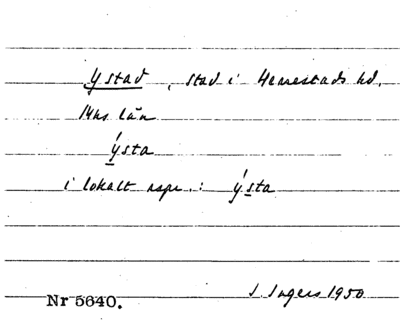 Ystad, stad i Herrestads hd,
Mhs. län
ýsta
i lokalt uspr.: ýsta
Nr 5640. I. Ingers 1950